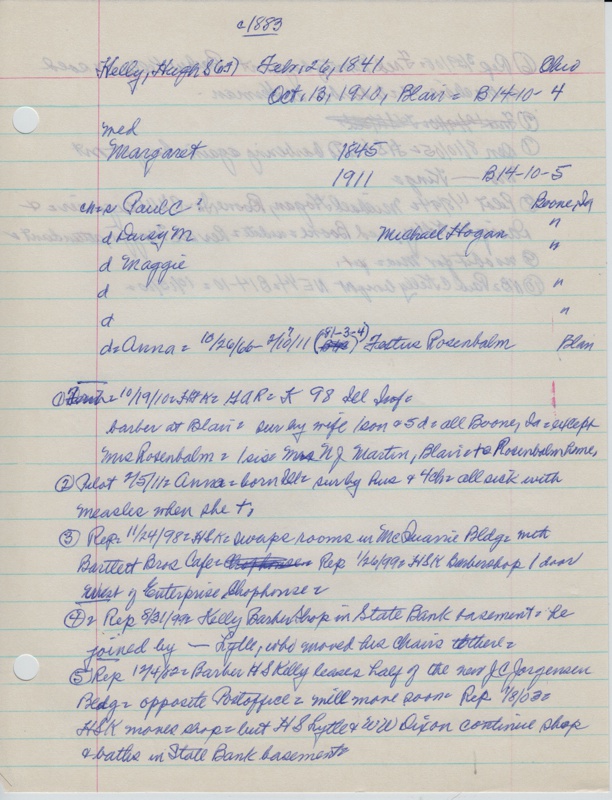 c1883
Kelly, Hugh S (69) Feb. 26, 1841 Ohio
Oct. 13, 1910, Blair = B14-10-4
med
Margaret 1845
1911 B14-10-5
ch = s Paul C Boone, Ia
d Daisy M Michael Hogan "
d Maggie "
d "
d "
d = Anna = 10/26/66 - 2/7/11 (81-3-4) Festus Rosenbalm Blair
① 10/19/10 = HSK = GAR = K 98 Ill Inf =
barber at Blair = sur by wife 1 son & 5 d = all Boone, Ia = except
Mrs Rosenbalm = 1 sis = Mrs N J Martin, Blair =
② Pilot 2/15/11 = Anna = born Ill = sur by hus & 4 ch = all sick with
measles when she †,
③ Rep = 11/24/98 = HSK = swaps rooms in McQuarrie Bldg = with
Bartlett Bros Cafe = Rep 1/26/99 = HSK barbershop 1 door
West of Enterprise Chophouse =
④ = Rep 8/31/99 = Kelly Barber Shop in State Bank basement = he
joined by — Lytle, who moved his chairs there =
⑤ Rep 12/4/02 = Barber H S Kelly leases half of the new J C Jorgensen
Bldg = opposite Postoffice = will move soon = Rep 1/8/03 =
HSK moves shop = but H S Lytle & WW Dixon continue shop
& baths in State Bank basement =